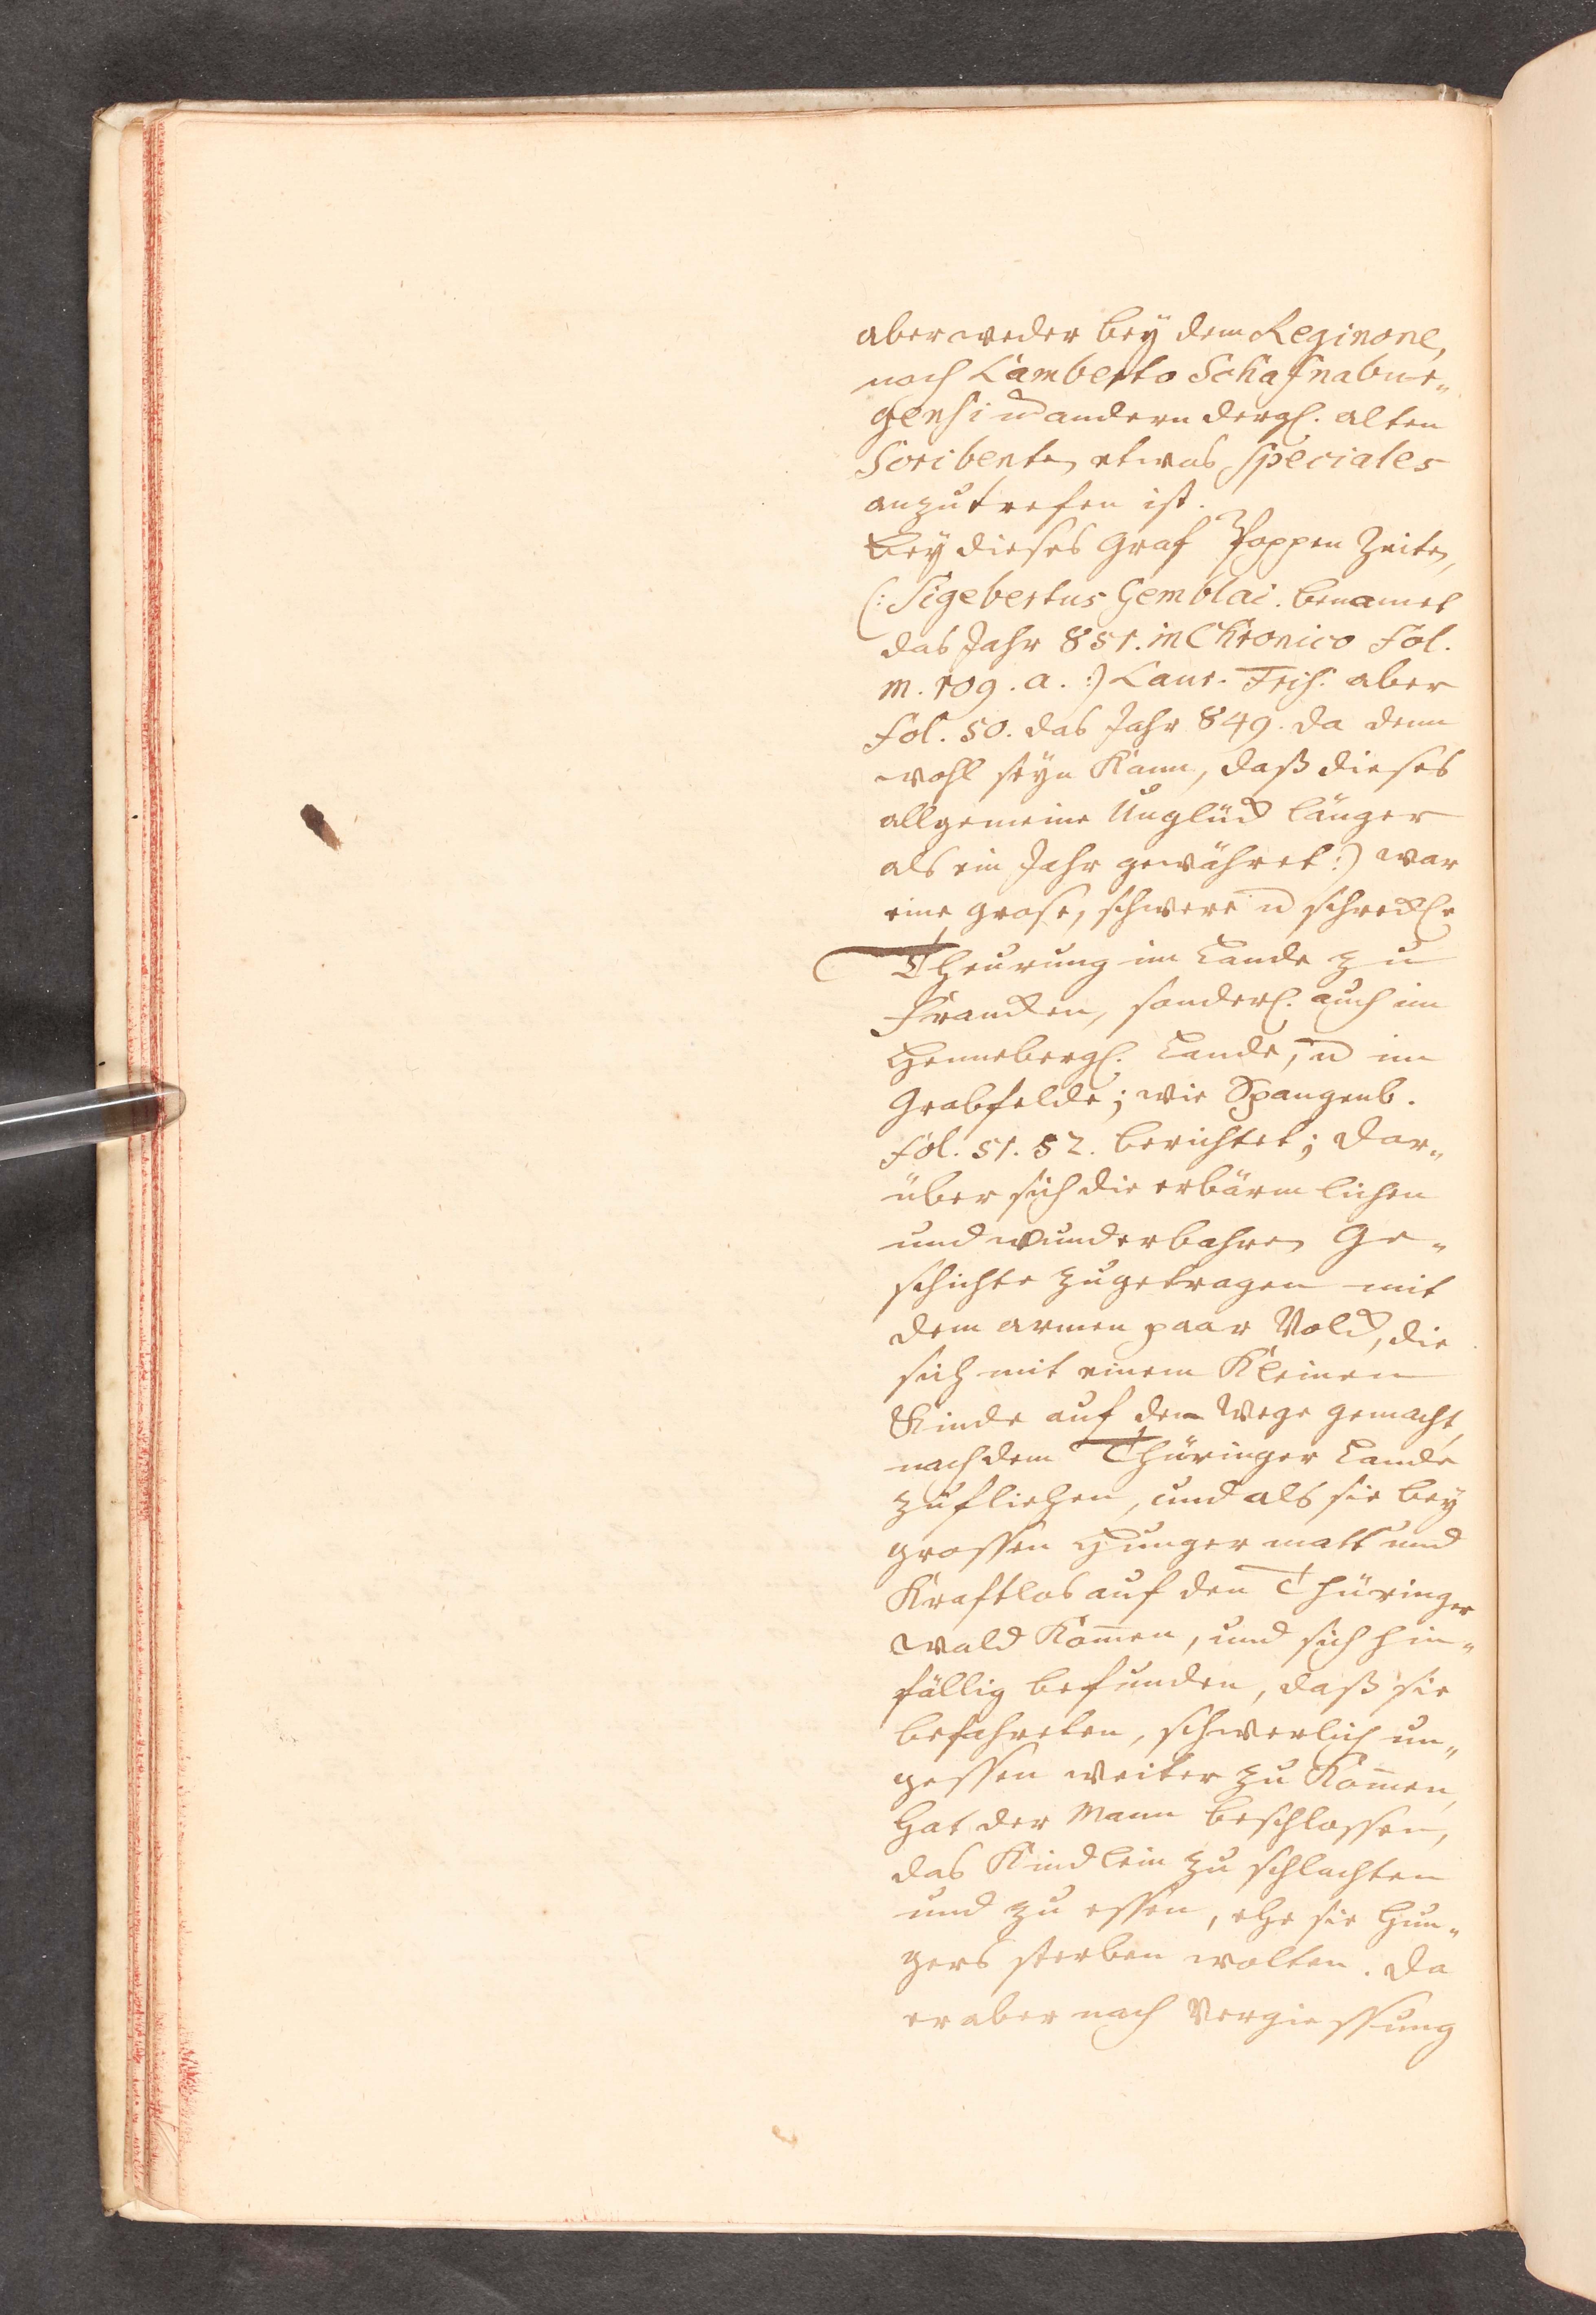 aber weder bey dem Reginone,
noch Lamberto Schafnabur„
gensi u andern dergl. alten
Scribenten etwas speciales
anzutrefen ist.
Bey dieses Graf Poppen Zeiten,
(: Sigebertus Gemblac. benamet
das Jahr 851. in Chronico Fol.
m. 109. a. :) Laur. Fris. aber
fol. 50. das Jahr 849. da denn
wohl seyn kann, daß dieses
allgemeine Unglück länger
als ein Jahr gewähret :) war
eine grose, schwere u schreckl.
Theurung im Lande zu
Francken, sonderl. auch im
Hennebergl. Lande, u im
Grabfelde; wie Spangenb.
fol. 51. 52. berichtet; dar„
über sich die erbärmlichen
und wunderbahren Ge„
schichte zugetragen mit
dem armen paar Volck, die
sich mit einem kleinen
Kinde auf den Wege gemacht,
nach dem Thüringer Lande
zu fliehen, und als sie bey
grossen Hunger matt und
krafftlos auf den Thüringer
wald kom̄en, und sich hin„
fällig befunden, daß sie
befahreten, schwerlich un„
gessen weiter zu kom̄en,
hat der Mann beschlossen,
das Kindlein zu schlachten
und zu essen, ehe sie Hun„
gers sterben wolten. Da
er aber nach Vergiessung